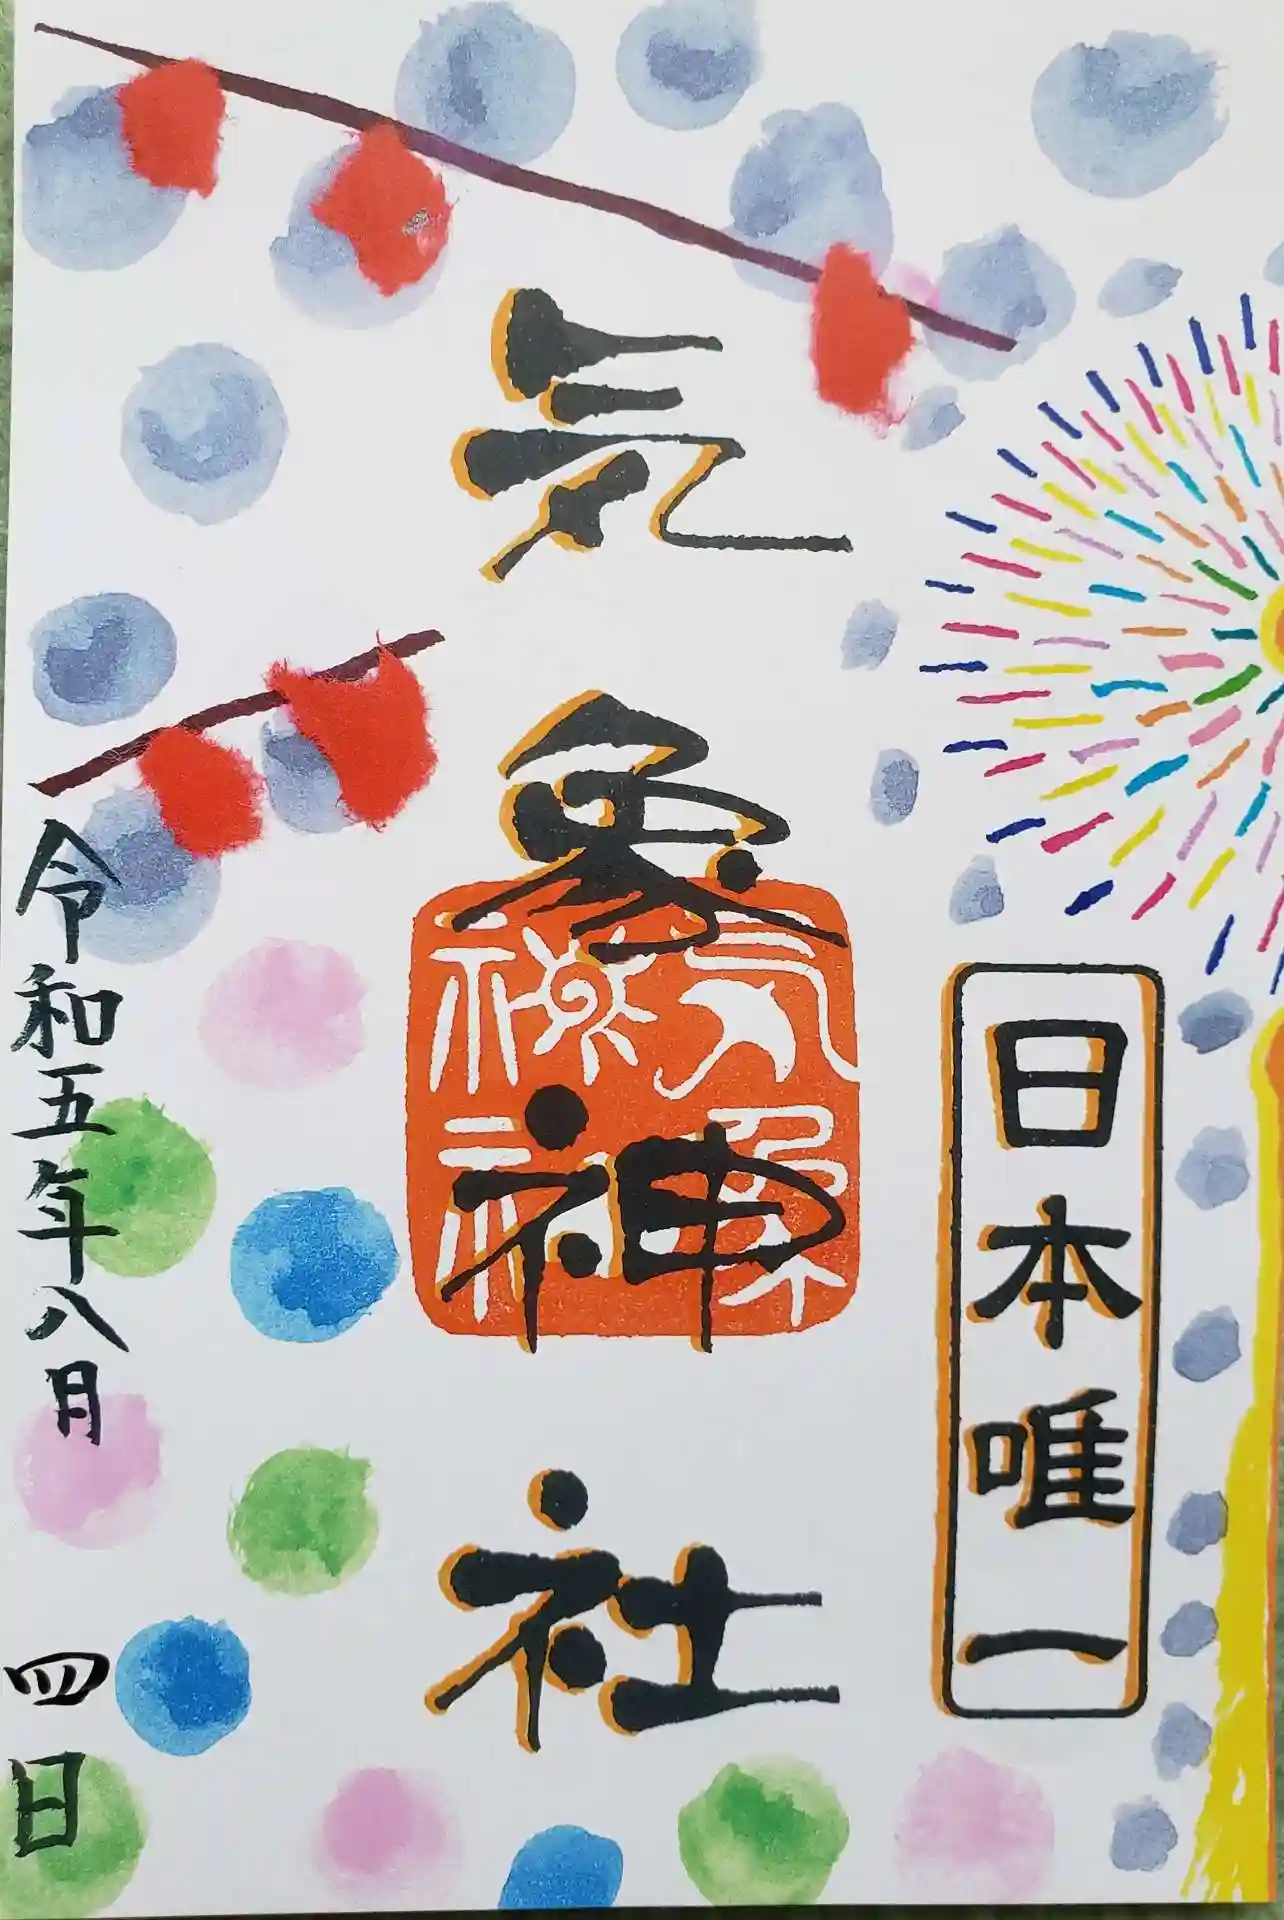 日本唯一
気象神社
気象神社
令和五年八月四日